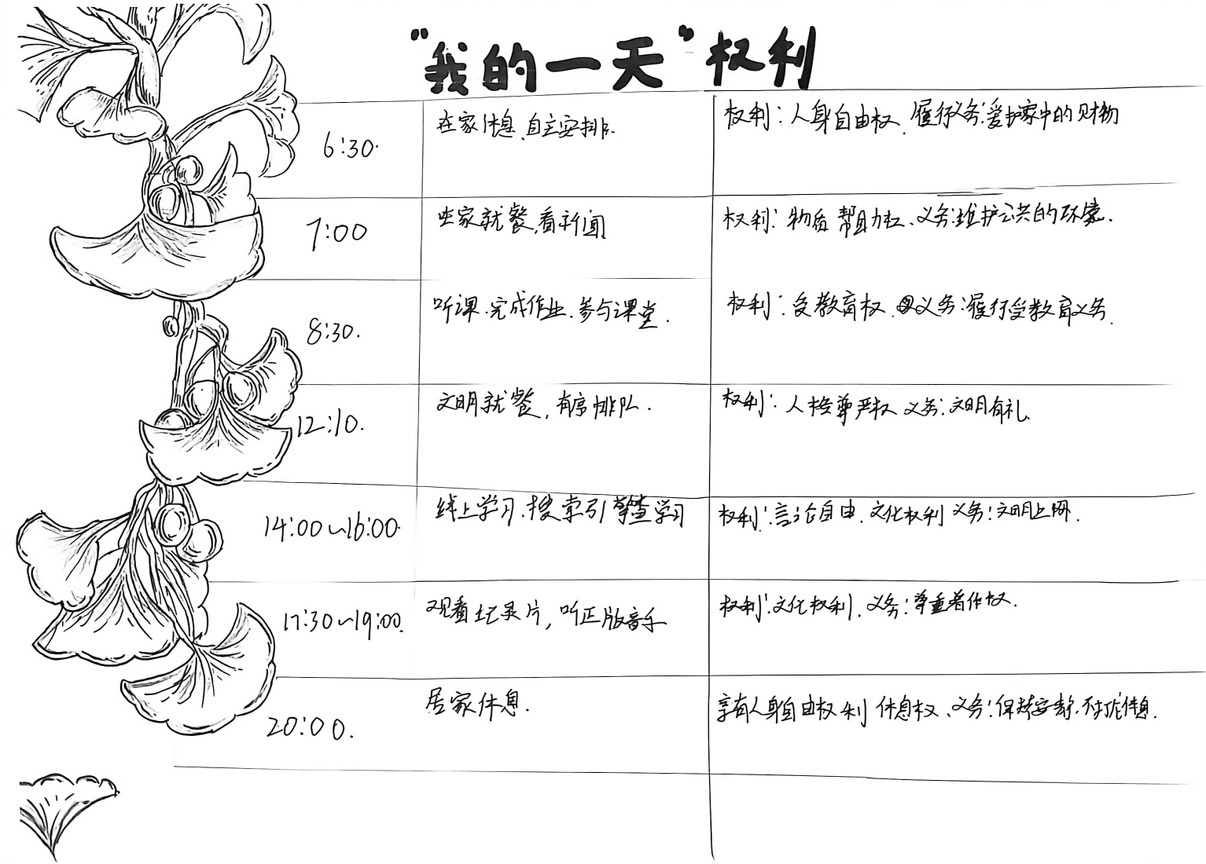 “我的一天”权利
6:30. 在家休息,自主安排. 权利:人身自由权.履行义务:爱护家中的财物
7:00 在家就餐,看新闻 权利:物质帮助权、义务:维护公共的环境.
8:30. 听课.完成作业.参与课堂. 权利:受教育权.义务:履行受教育义务.
12:10. 文明就餐,有序排队. 权利:人格尊严权 义务:文明有礼.
14:00~16:00. 线上学习.搜索引擎查学习 权利:言论自由.文化权利 义务:文明上网.
17:30~19:00. 观看纪录片,听正版音乐 权利:文化权利.义务:尊重著作权.
20:00. 居家休息. 享有人身自由权利 休息权、义务:保持安静.不打扰信息.